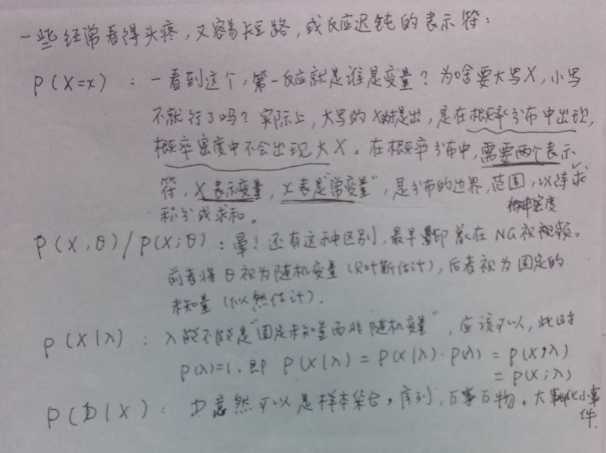 一些经常看得头疼，又容易短路，或反应迟钝的表示符：
P(X=x)：一看到这个，第一反应就是谁是变量？为啥要大写X，小写
不就行了吗？实际上，大写的X的提出，是在概率分布中出现，
概率密度中不会出现大X。在概率分布中，需要两个表示
符，X表示变量，x表是"常变量"，是分布的边界，范围，以待求
积分或求和。
概率密度
P(X,θ)/P(X;θ)：晕！还有这种区别，最早是在NG视频。
前者将θ视为随机变量（贝叶斯估计），后者视为固定的
未知量（似然估计）。
P(X|λ)：λ能不能是"固定未知量而非随机变量"，应该可以，此时
P(λ)=1，即 P(X|λ)=P(X|λ)·P(λ)=P(X,λ)
=P(X;λ)
P(D|X)：D竟然可以是样本集合，序列，万事万物。大事化小事
件.